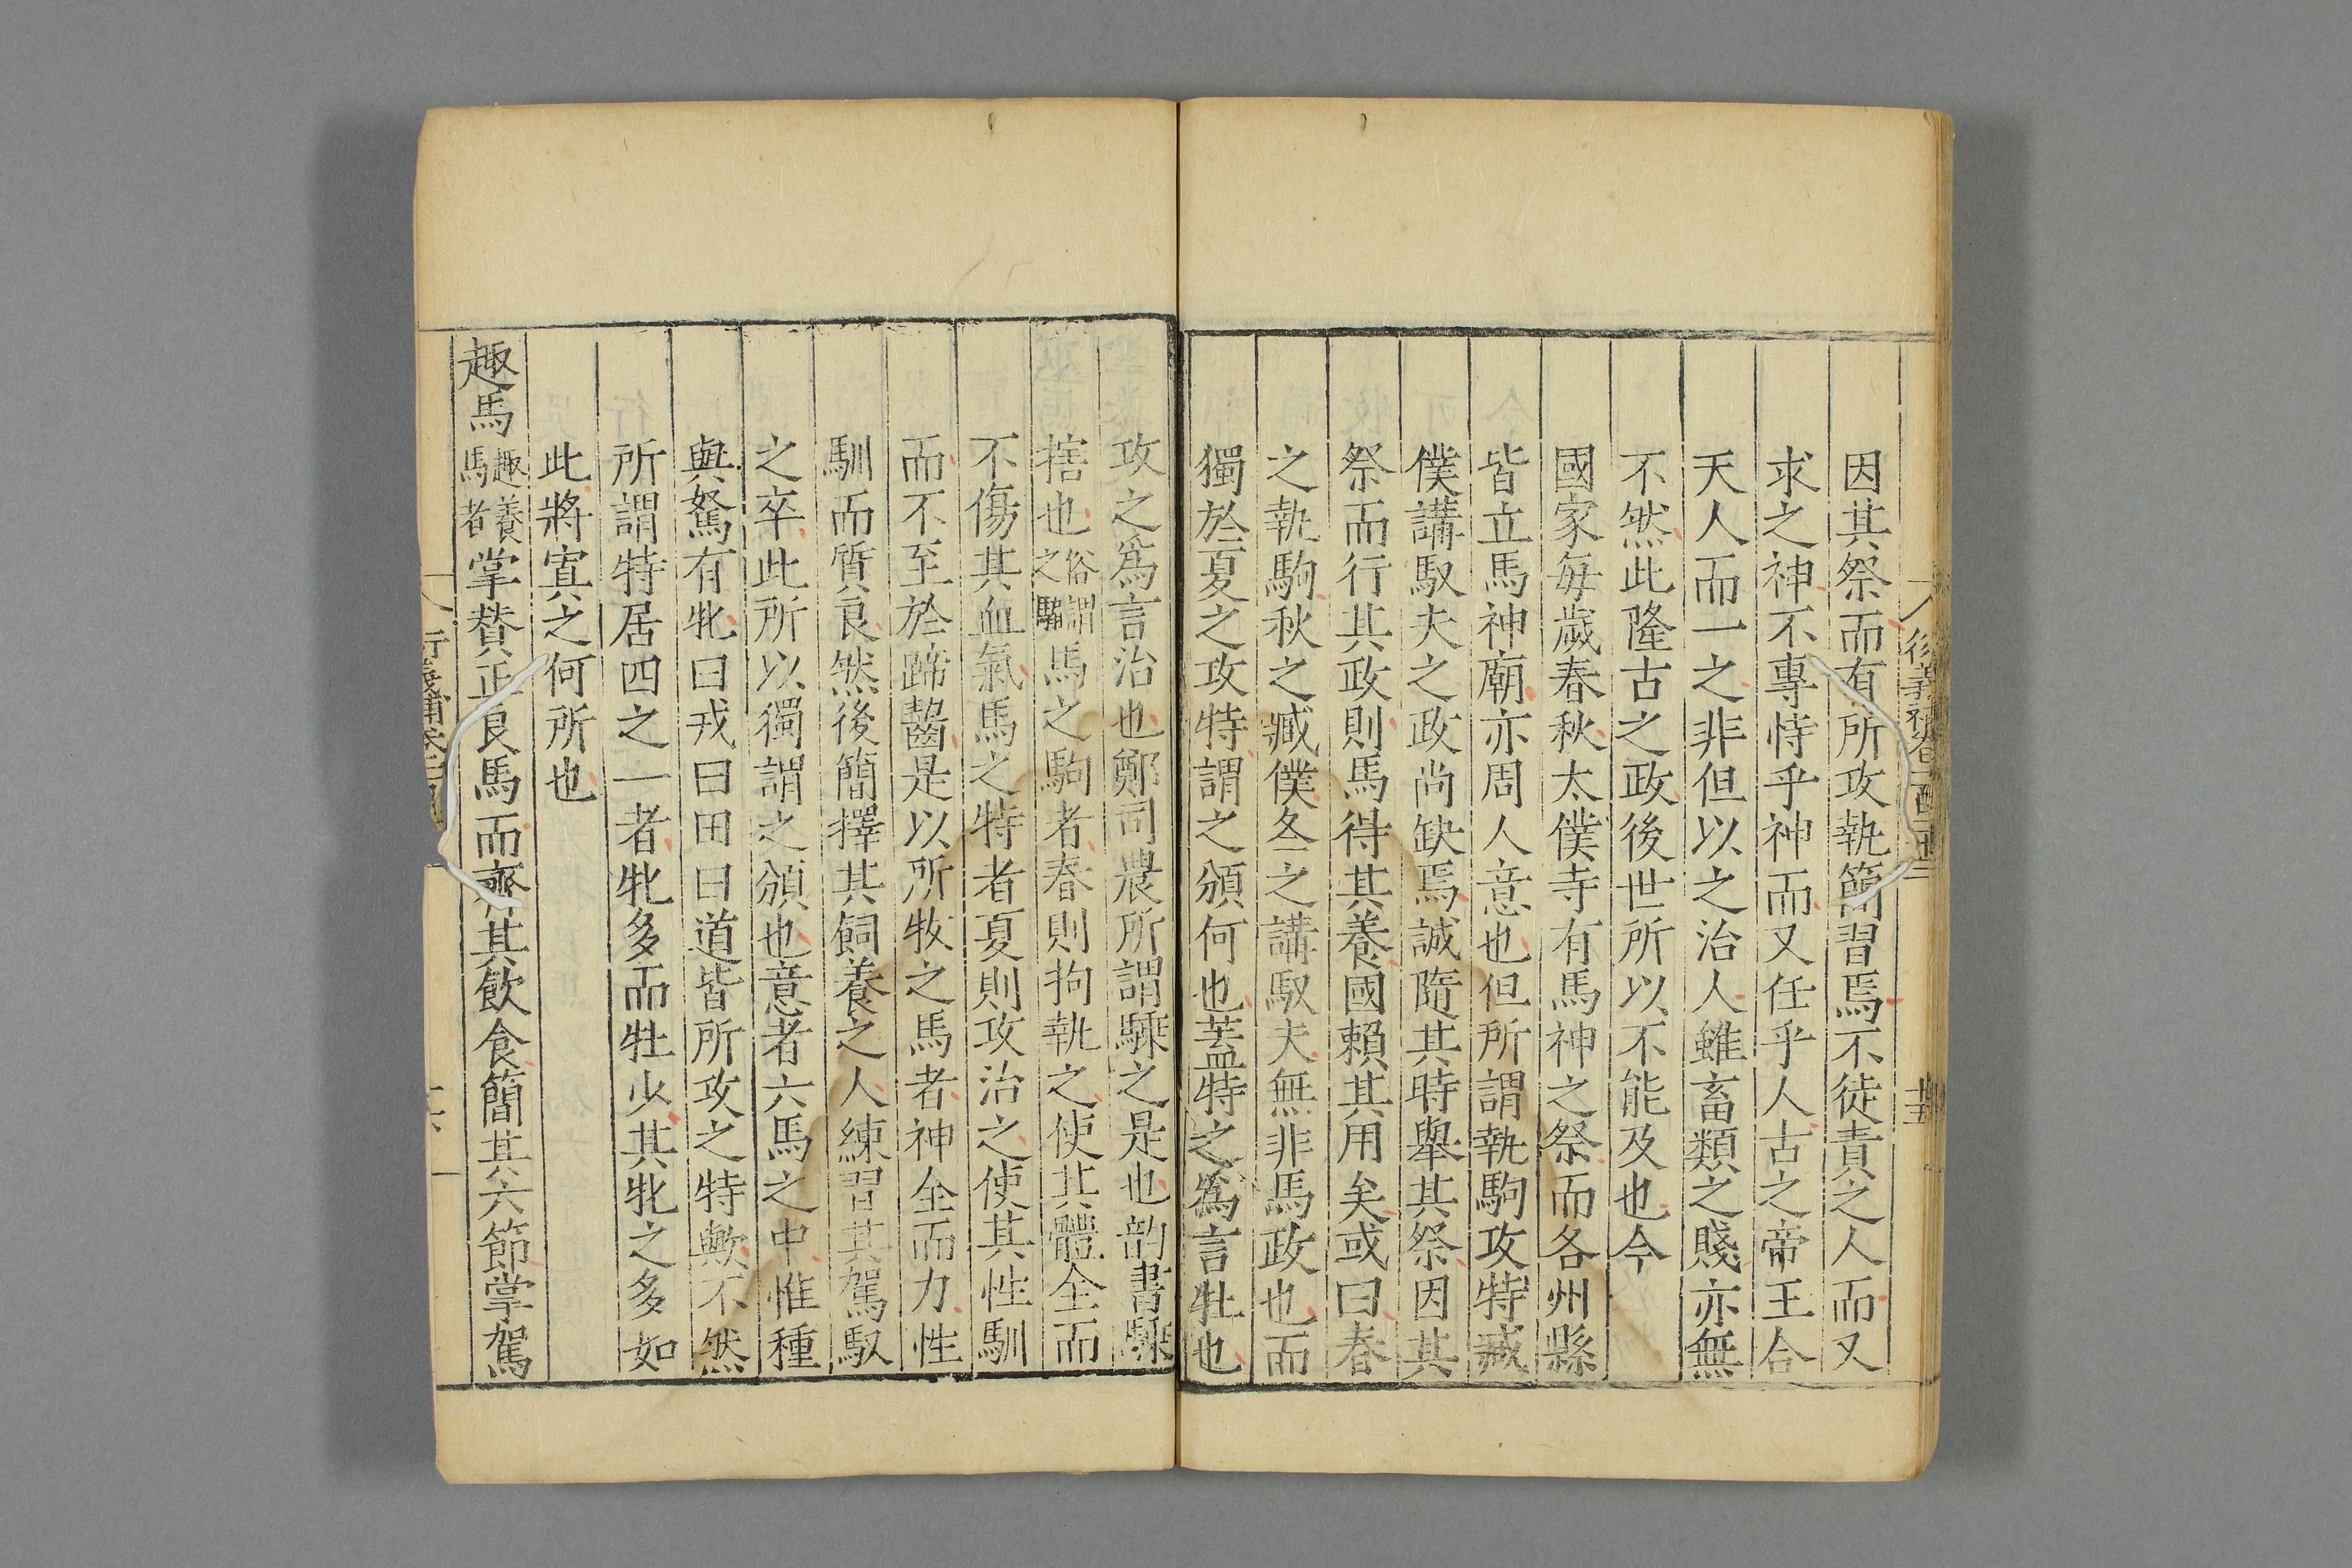 因其祭而有所攻執簡習焉不徒責之人而又
求之神不專恃乎神而又任乎人古之帝王合
天人而一之非但以之治人雖畜類之賤亦無
不然此隆古之政後世所以不能及也今
國家每歲春秋太僕寺有馬神之祭而各州縣
皆立馬神廟亦周人意也但所謂執駒攻特臧
僕講馭夫之政尚缺焉誠隨其時舉其祭因其
祭而行其政則馬得其養國賴其用矣或曰春
之執駒秋之臧僕冬之講馭夫無非馬政也而
獨於夏之攻特謂之頒何也蓋特之為言牡也
攻之為言治也鄭司農所謂騬之是也韵書騬
犗也俗謂之騸馬之駒者春則拘執之使其體全而
不傷其血氣馬之特者夏則攻治之使其性馴
而不至於蹄齧是以所牧之馬者神全而力性
馴而質良然後簡擇其飼養之人練習其駕馭
之卒此所以獨謂之頒也意者六馬之中惟種
與駑有牝曰戎曰田曰道皆所攻之特歟不然
所謂特居四之一者牝多而牡少其牝之多如
此將寘之何所也
趣馬趣養馬者掌贊正良馬而齊其飲食簡其六節掌駕